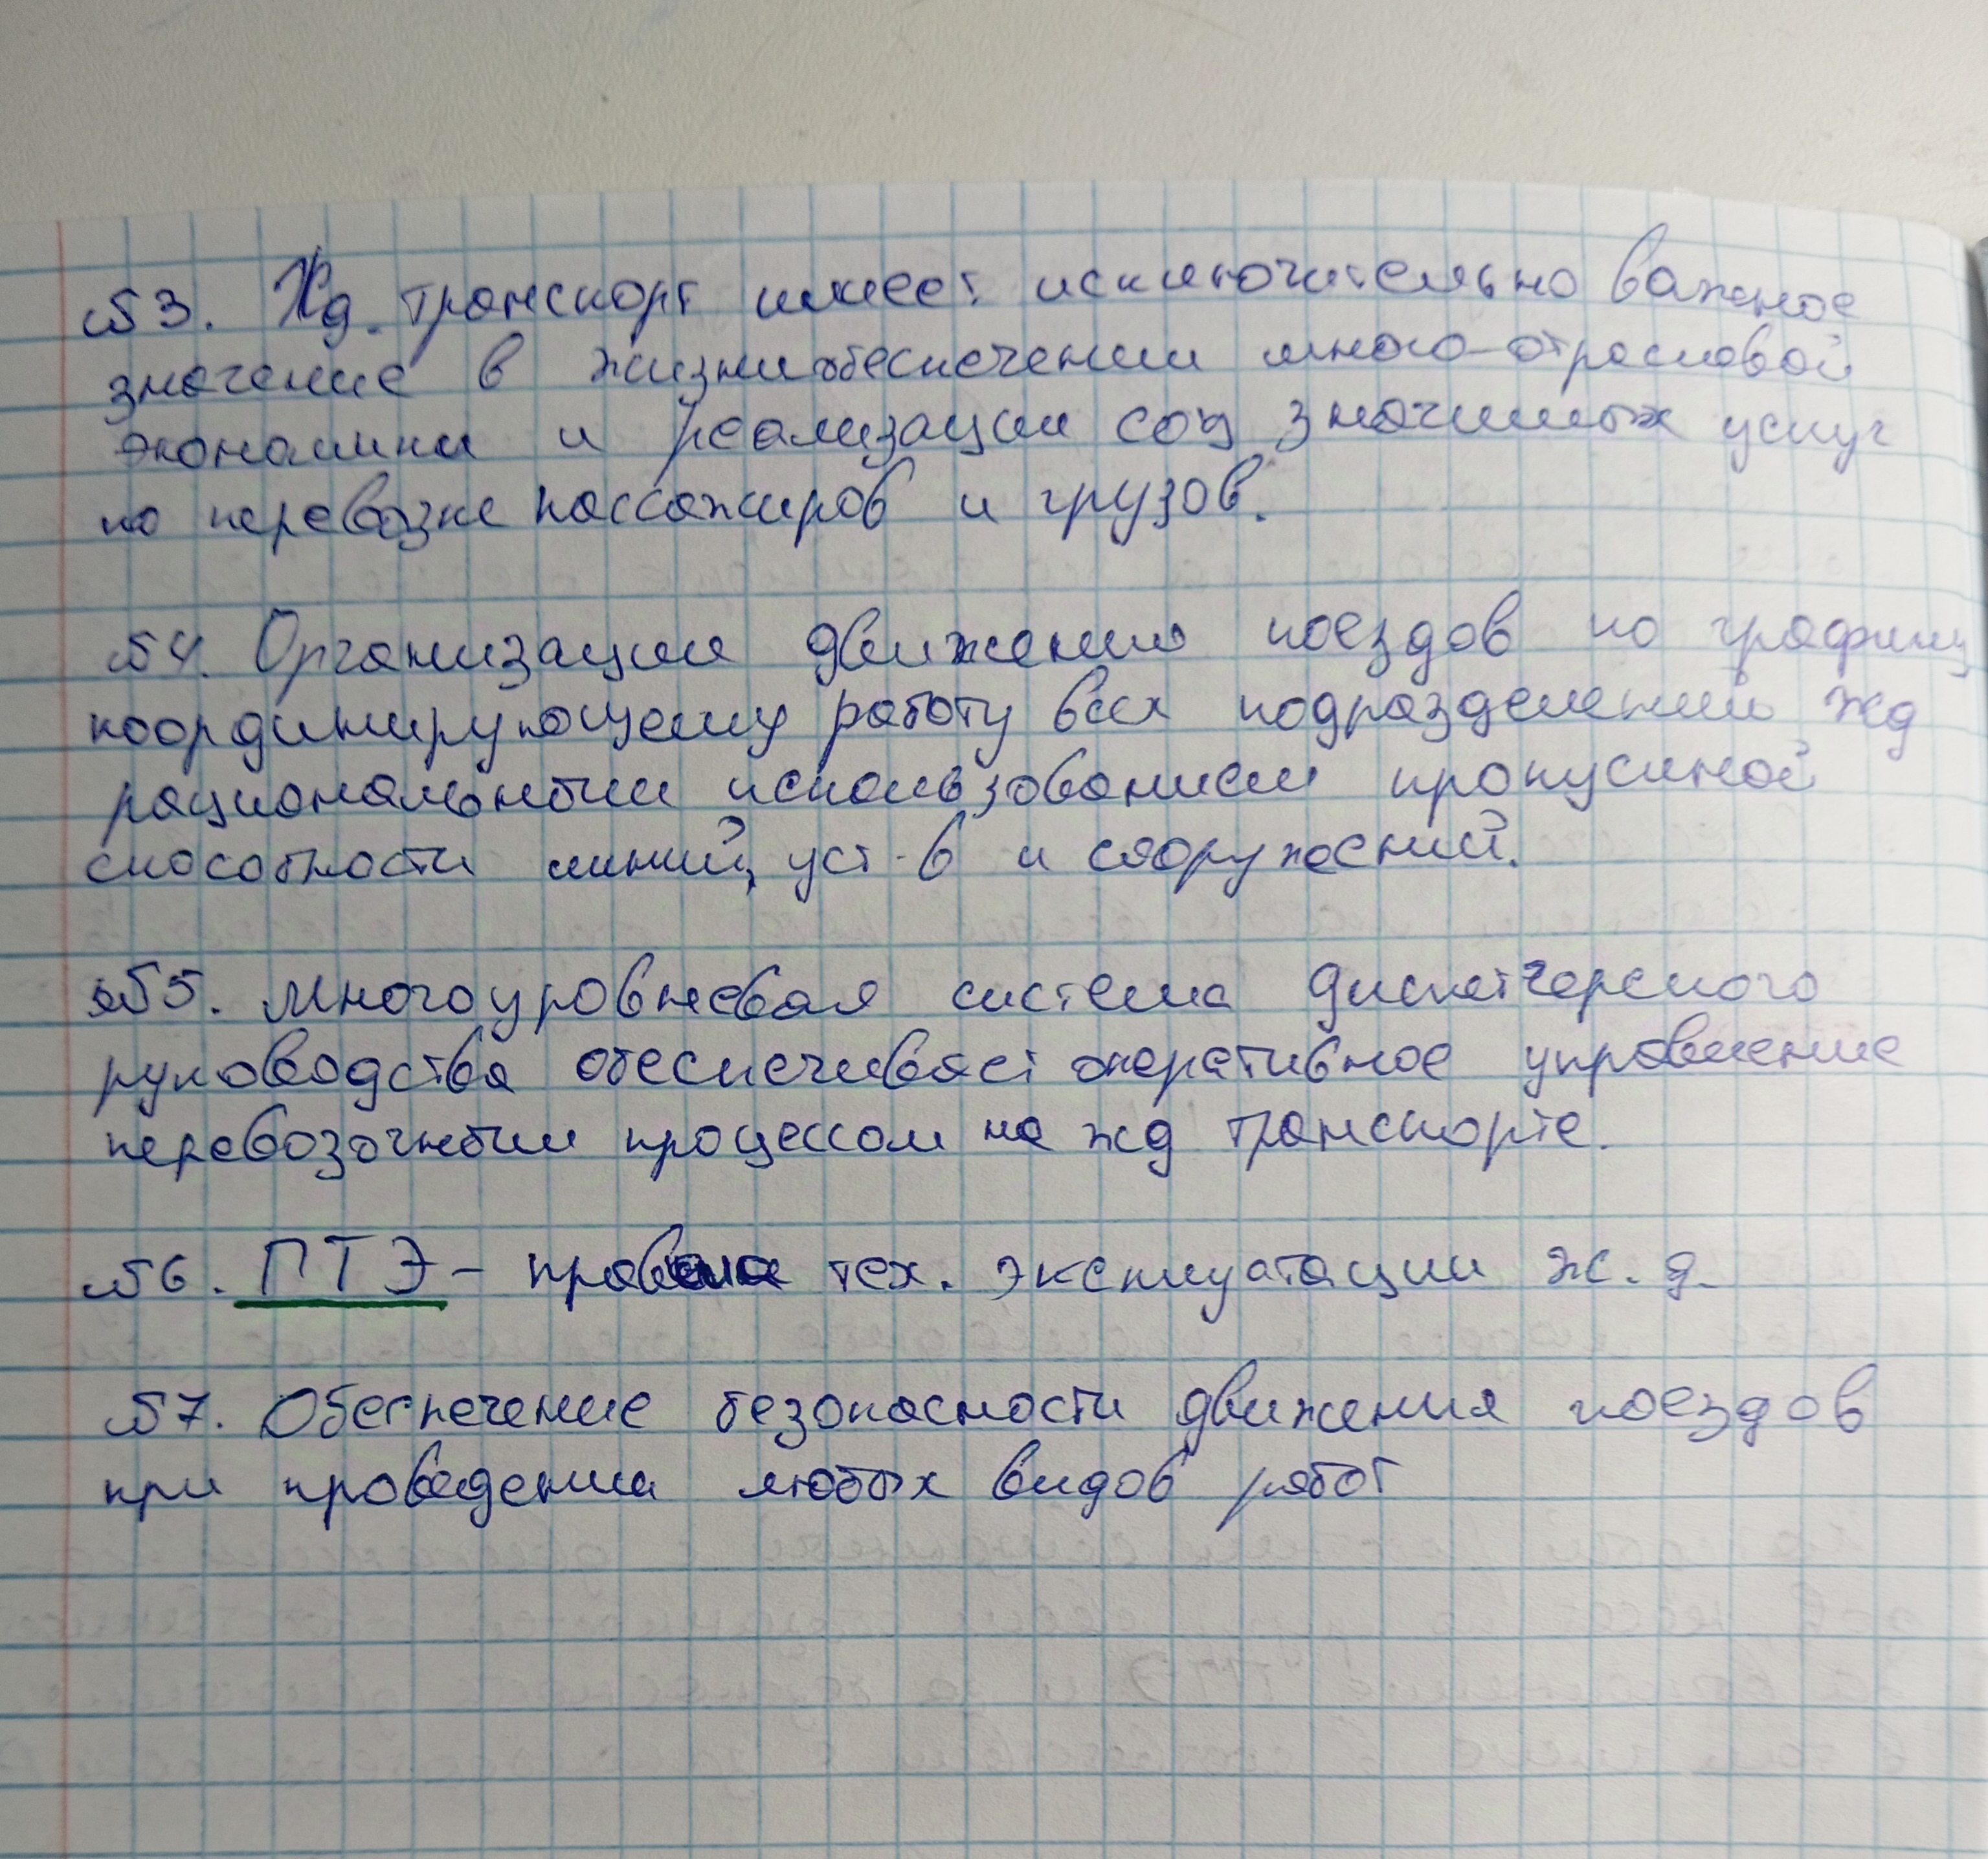 №3. Жд. транспорт имеет исключительно важное
значение в жизниобеспечении много-отраслевой
экономики и реализации соц значимых услуг
по перевозке пассажиров и грузов.
№4. Организации движения поездов по графику
координирующему работу всех подразделений жд
рациональным использованием пропускной
способности линий, уст-в и сооружений.
№5. Многоуровневая система диспетчерского
руководства обеспечивает оперативное управление
перевозочным процессом на жд транспорте.
№6. ПТЭ - правила тех. эксплуатации ж. д.
№7. Обеспечение безопасности движения поездов
при проведении любых видов работ